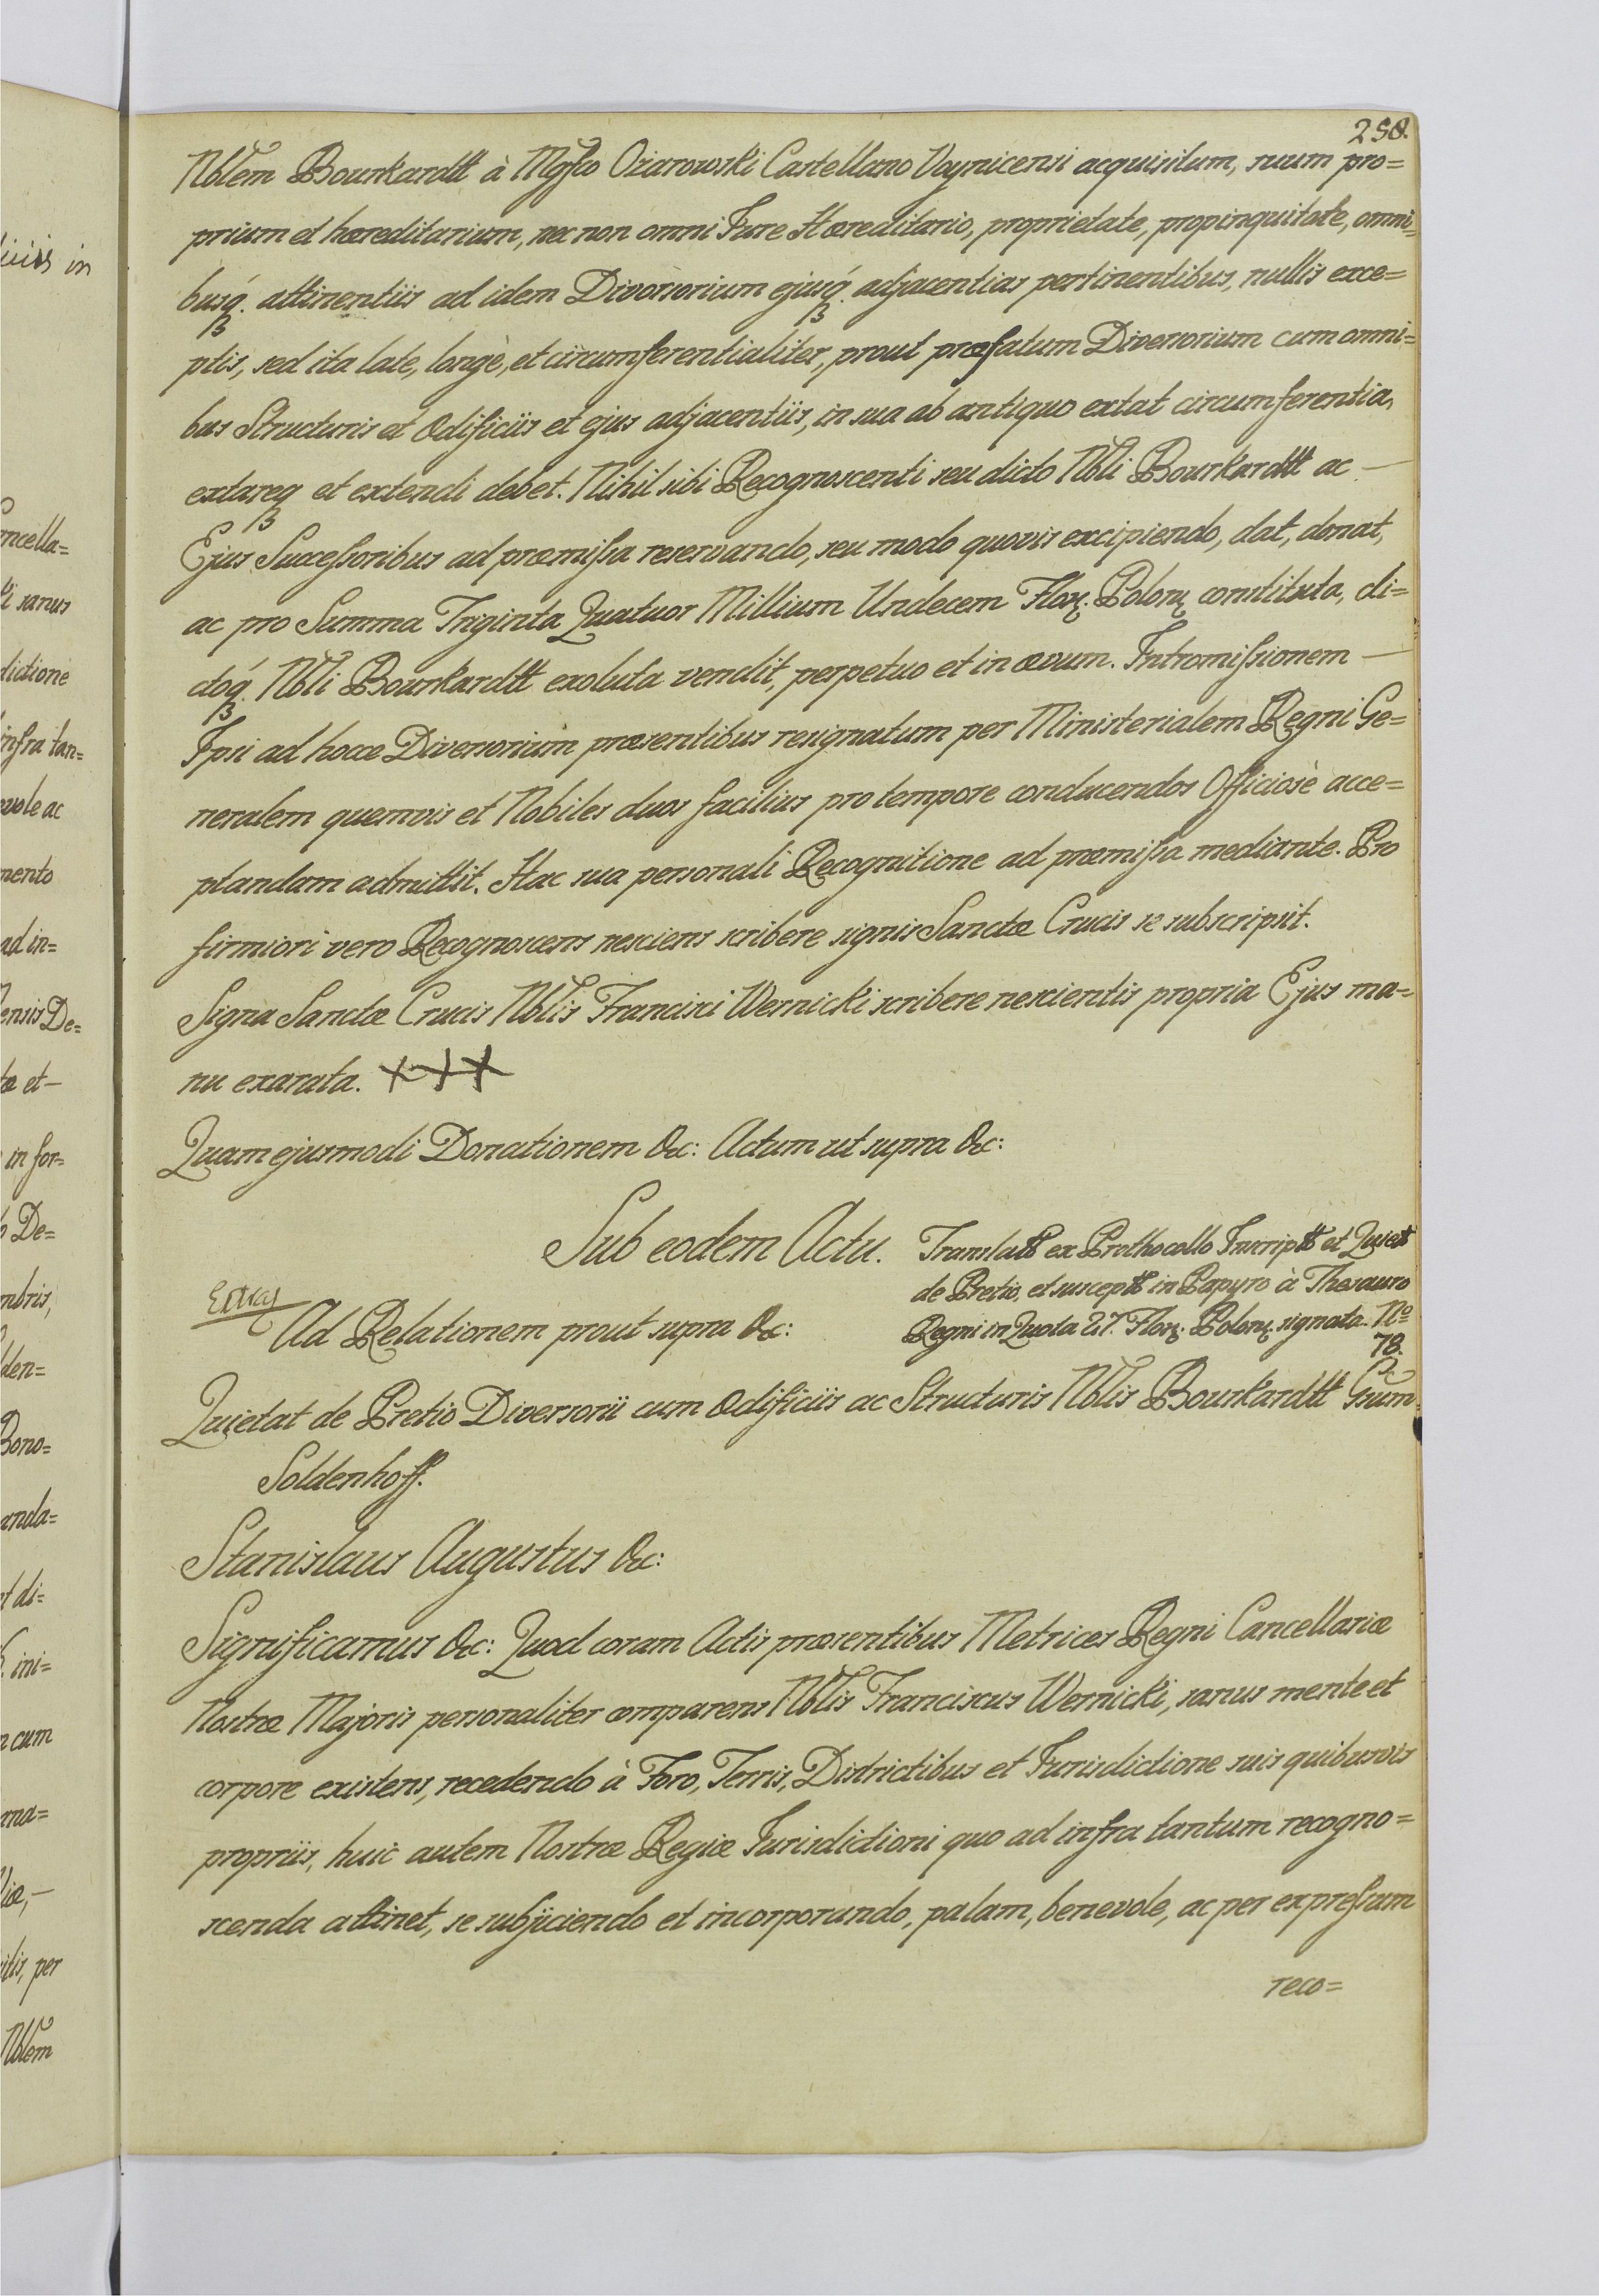 258.
Nblem Bourkardtt à Mgfco Ożarowski Castellano Voynicensi acquisitum, suum pro=
prium et hæreditarium, nec non omni Jure Hæreditario, proprietate, propinquitate, omni=
busq́ȝ. attinentiis ad idem Diversorium ejusq́ȝ. adjacentias pertinentibus, nullis exce=
ptis, sed ita late, longè, et circumferentialiter, prout præfatum Diversorium cum omni=
bus Structuris et Ædificiis et ejus adjacentiis, in sua ab antiquo extat circumferentia,
extareqȝ et extendi debet. Nihil sibi Recognoscenti seu dicto Nbli Bourkardtt ac —
Ejus Successoribus ad præmissa reservando, seu modo quovis excipiendo, dat, donat,
ac pro Summa Triginta Quatuor Millium Undecem Flor. Polon. constituta, di=
ctoq́ȝ. Nbli Bourkardtt exoluta vendit, perpetuo et in ævum. Intromissionem —
Ipsi ad hocce Diversorium præsentibus resignatum per Ministerialem Regni Ge=
neralem quemvis et Nobiles duos facilius pro tempore conducendos Officiosè acce=
ptandam admittit. Hac sua personali Recognitione ad præmissa mediante. Pro
firmiori vero Recognoscens nesciens scribere signis Sanctæ Crucis se subscripsit.
Signa Sanctæ Crucis Nblis Francisci Wernicki scribere nescientis propria Ejus ma=
nu exarata. +++
Quam ejusmodi Donationem &c: Actum ut supra &c:
Sub eodem Actu.
Translatt ex Prothocollo Inscriptt et Quiett
de Pretio, et susceptt in Papyro à Thesauro
Regni in Quota 27. Flor. Polon. signato. Nº
78.
Extras
Ad Relationem prout supra &c:
Quietat de Pretio Diversorii cum Ædificiis ac Structuris Nblis Bourkardtt Gsum
Soldenhoff.
Stanislaus Augustus &c:
Significamus &c: Quod coram Actis præsentibus Metrices Regni Cancellariæ
Nostræ Majoris personaliter comparens Nblis Franciscus Wernicki, sanus mente et
corpore existens, recedendo à Foro, Terris, Districtibus et Jurisdictione suis quibusvis
propriis, huic autem Nostræ Regiæ Jurisdictioni quo ad infra tantum recogno=
scenda attinet, se subjiciendo et incorporando, palam, benevole, ac per expressum
reco=